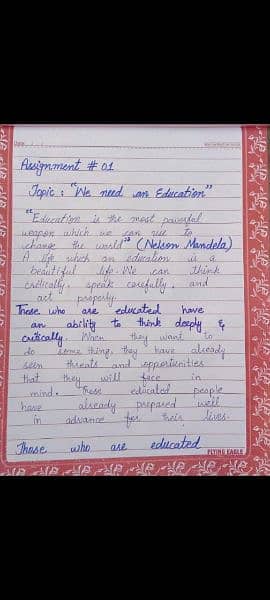 Date
Assignment # 01
Topic : "We need an Education"
"Education is the most powerful
weapon which we can use to
change the world" (Nelson Mandela)
A life which an education is a
beautiful life. We can think
critically, speak carefully, and
act properly.
Those who are educated have
an ability to think deeply &
critically. When they want to
do some thing, they have already
seen threats and opportunities
that they will face in
mind. These educated people
have already prepared well
in advance for their lives.
Those who are educated
FLYING EAGLE